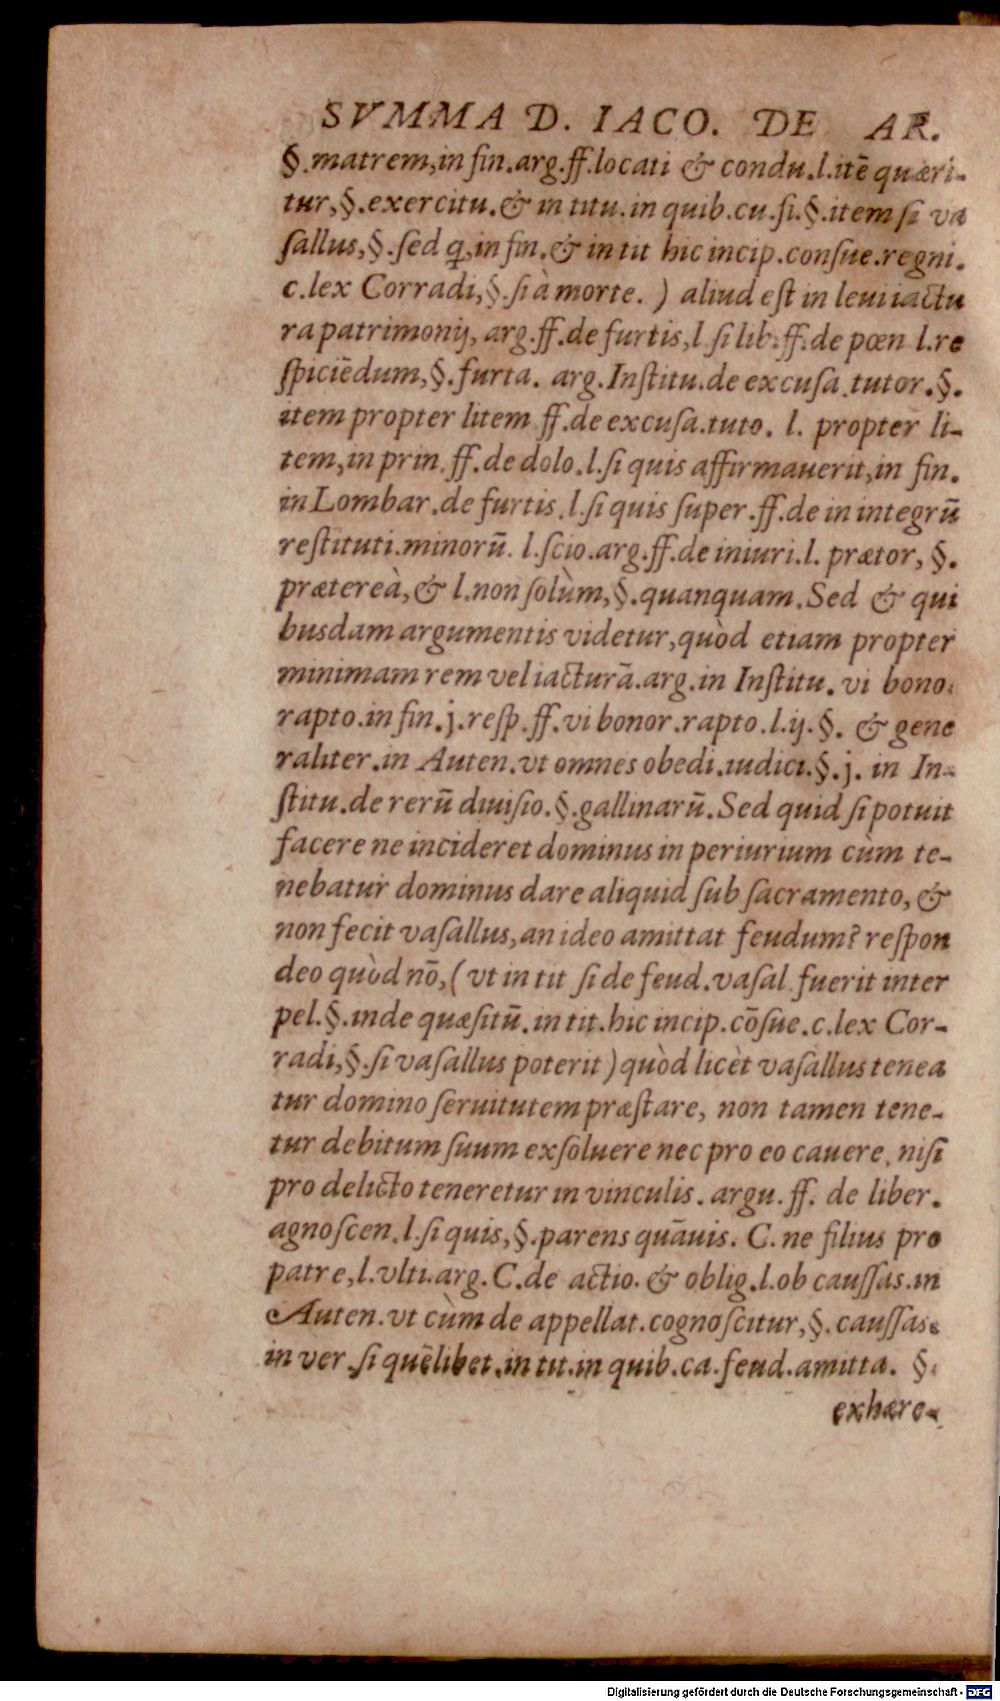 SVMMA D. IACO. DE AR.
§. matrem, in fin. arg. ff. locati & condu. l. itē quæri-
tur, §. exercitu. & in titu. in quib. cu. si. §. item si va
sallus, §. sed q, in fin. & in tit hic incip. consue. regni.
c. lex Corradi, §. si à morte. ) aliud est in leui iactu
ra patrimonij, arg. ff. de furtis, l si lib. ff. de pœn l. re
spiciēdum, §. furta. arg. Institu. de excusa. tutor. §.
item propter litem ff. de excusa. tuto. l. propter li-
tem, in prin. ff. de dolo. l. si quis affirmauerit, in fin.
in Lombar. de furtis. l. si quis super. ff. de in integrū
restituti. minorū. l. scio. arg. ff. de iniuri. l. prætor, §.
prætereà, & l. non solùm, §. quanquam. Sed & qui
busdam argumentis videtur, quòd etiam propter
minimam rem vel iacturā. arg. in Institu. vi bono.
rapto. in fin. j. resp. ff. vi bonor. rapto. l. ij. §. & gene
raliter. in Auten. vt omnes obedi. iudici. §. j. in In-
stitu. de rerū diuisio. §. gallinarū. Sed quid si potuit
facere ne incideret dominus in periurium cùm te-
nebatur dominus dare aliquid sub sacramento, &
non fecit vasallus, an ideo amittat feudum? respon
deo quòd nō, ( vt in tit si de feud. vasal fuerit inter
pel. §. inde quæsitū. in tit. hic incip. cōsue. c. lex Cor-
radi, §. si vasallus poterit ) quòd licèt vasallus tenea
tur domino seruitutem præstare, non tamen tene-
tur debitum suum exsoluere nec pro eo cauere, nisi
pro delicto teneretur in vinculis. argu. ff. de liber.
agnoscen. l. si quis, §. parens quāuis. C. ne filius pro
patre, l. vlti. arg. C. de actio. & oblig. l. ob caussas. in
Auten. vt cùm de appellat. cognoscitur, §. caussas.
in ver. si quēlibet. in tit. in quib. ca. feud. amitta. §.
exhære-
Digitalisierung gefördert durch die Deutsche Forschungsgemeinschaft - DFG